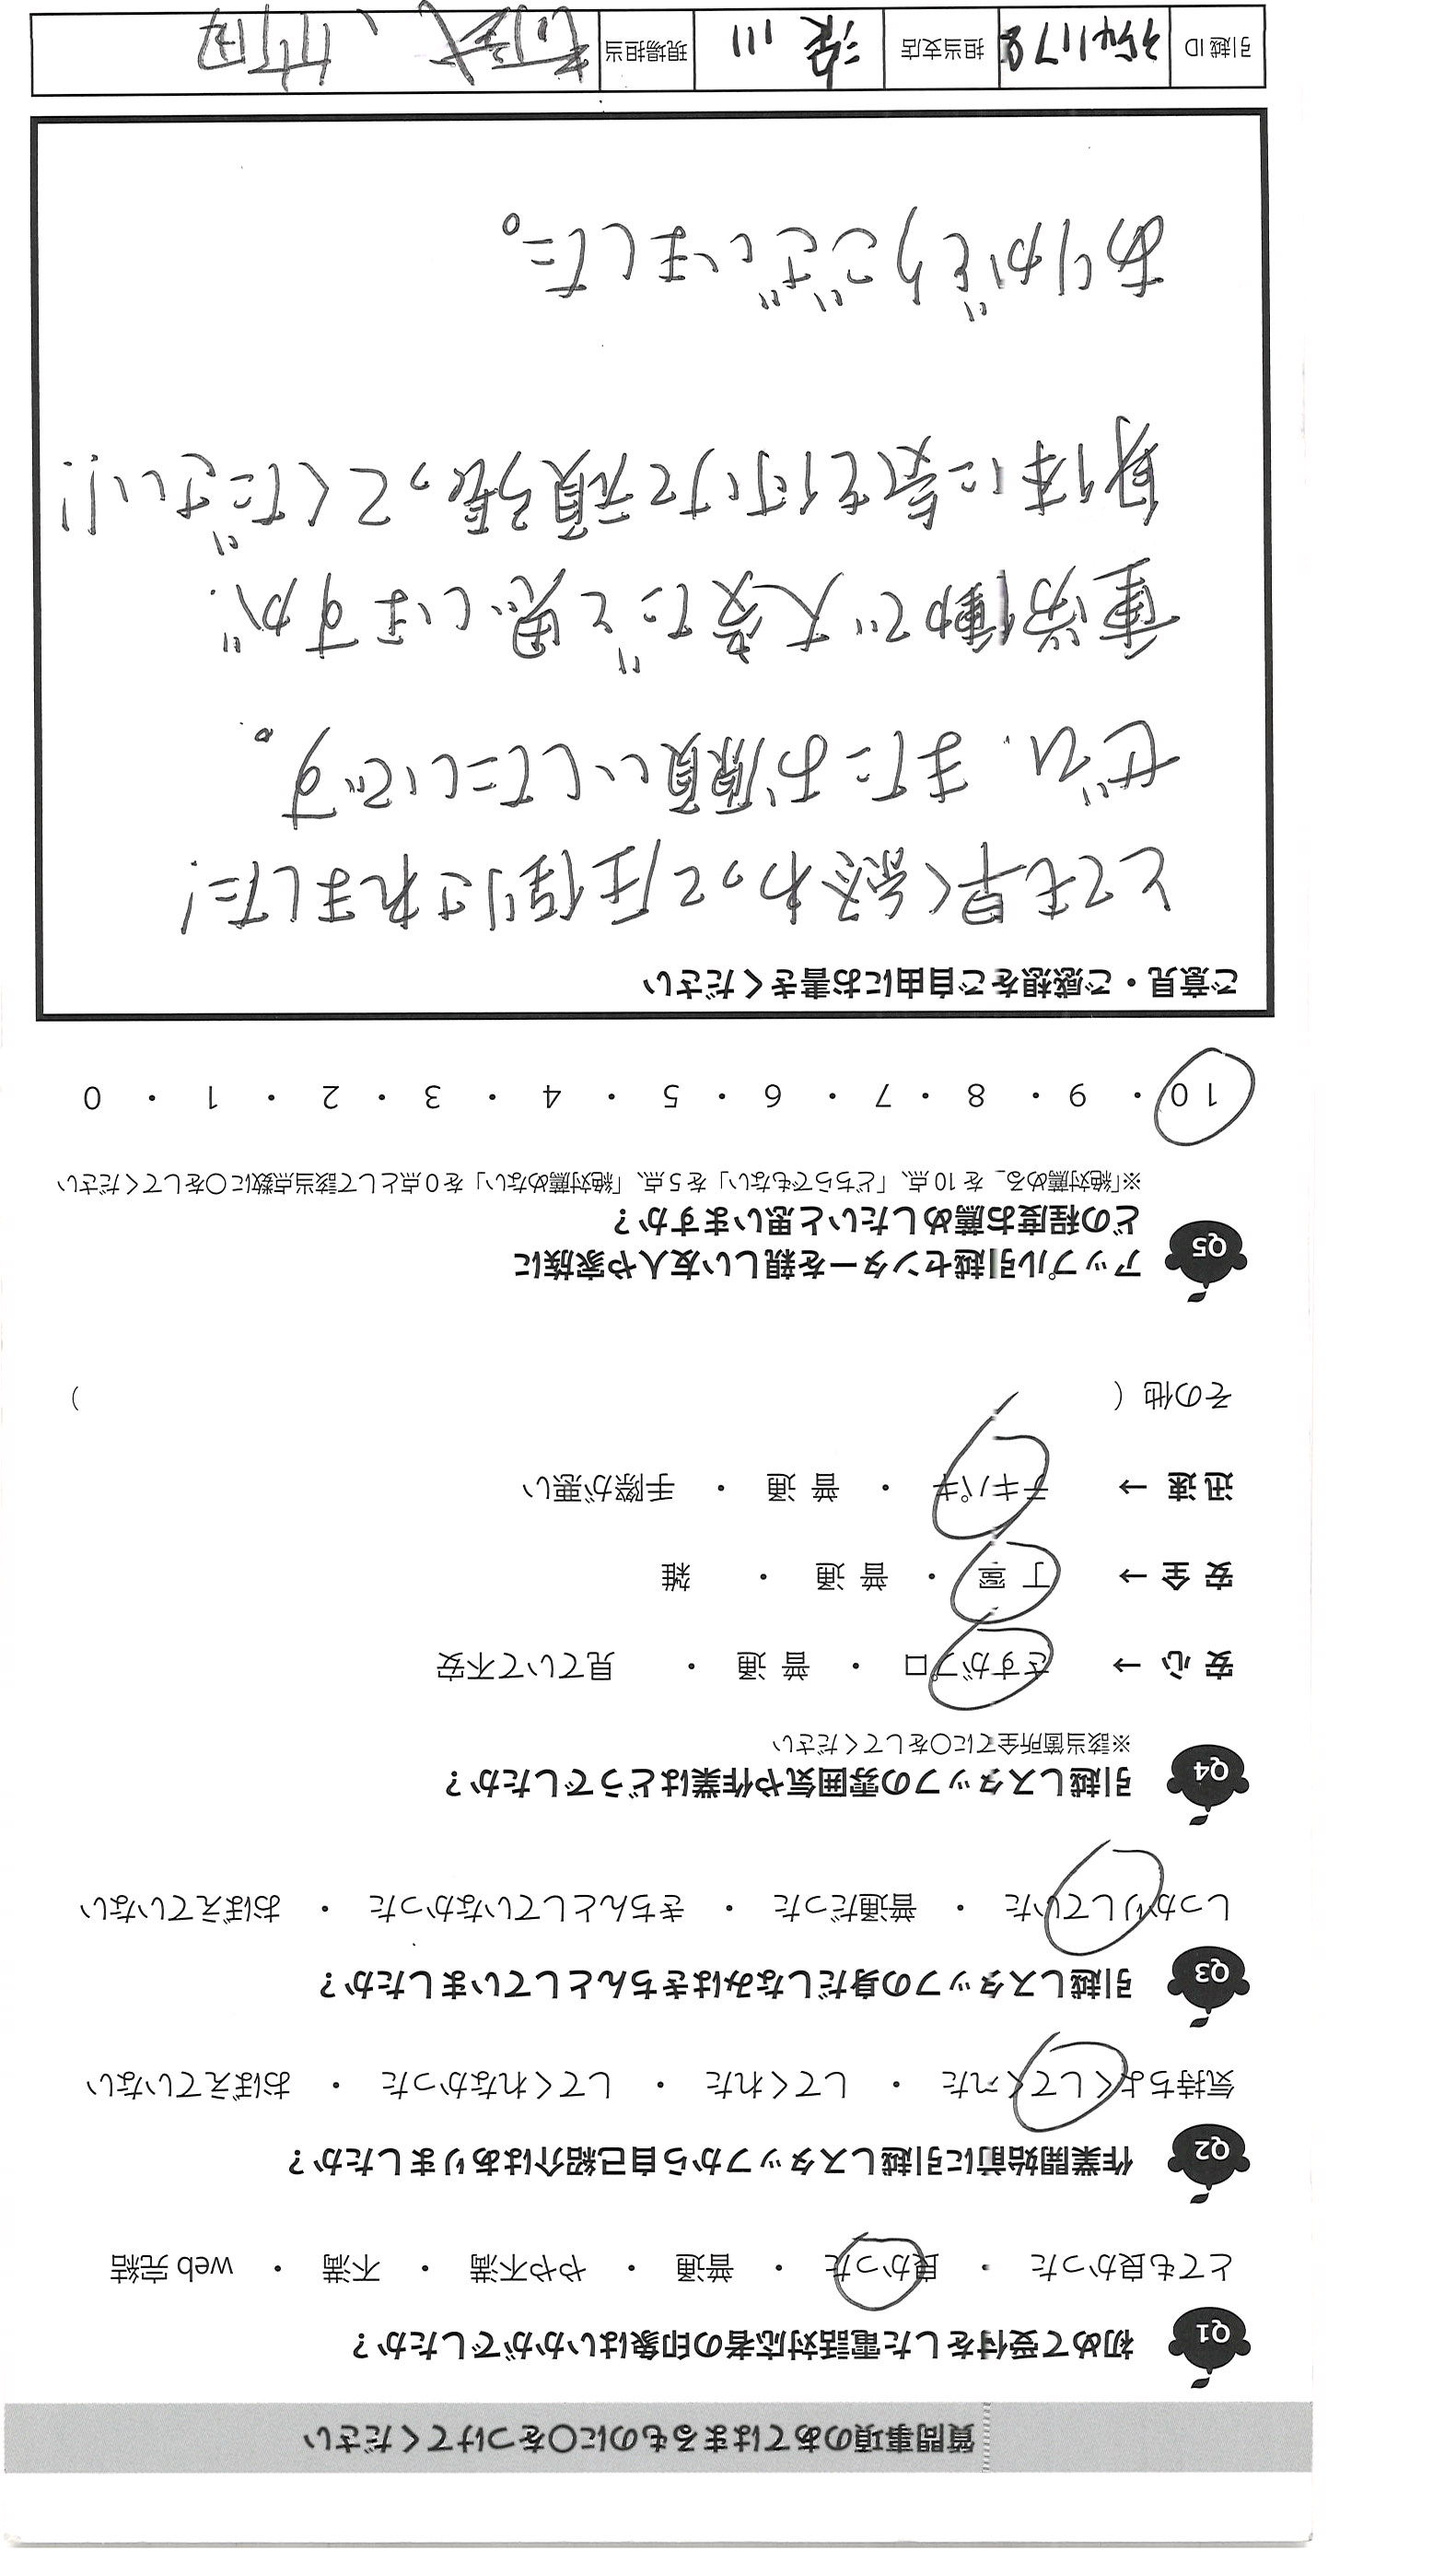 質問事項のあてはまるものに〇をつけてください
Q1 初めて受付をした電話対応者の印象はいかがでしたか？
とても良かった ・ 良かった ・ 普通 ・ やや不満 ・ 不満 ・ web 完結
Q2 作業開始前に引越しスタッフから自己紹介はありましたか？
気持ちよくしてくれた ・ してくれた ・ してくれなかった ・ おぼえていない
Q3 引越しスタッフの身だしなみはきちんとしていましたか？
しっかりしていた ・ 普通だった ・ きちんとしていなかった ・ おぼえていない
Q4 引越しスタッフの雰囲気や作業はどうでしたか？
※該当箇所全てに〇をしてください
安心 → さすがプロ ・ 普通 ・ 見ていて不安
安全 → 丁寧 ・ 普通 ・ 雑
迅速 → テキパキ ・ 普通 ・ 手際が悪い
その他（ ）
Q5 アップル引越センターを親しい友人や家族に
どの程度お薦めしたいと思いますか？
※「絶対薦める」を 10 点、「どちらでもない」を 5 点、「絶対薦めない」を 0 点として該当点数に〇をしてください
10 ・ 9 ・ 8 ・ 7 ・ 6 ・ 5 ・ 4 ・ 3 ・ 2 ・ 1 ・ 0
ご意見・ご感想をご自由にお書きください
とても早く終わって圧倒されました!
ぜひ、またお願いしたいです。
重労働で大変だと思いますが、
身体に気を付けて頑張ってください!!
ありがとうございました。
引越 ID 3541178 担当支店 滝川 現場担当